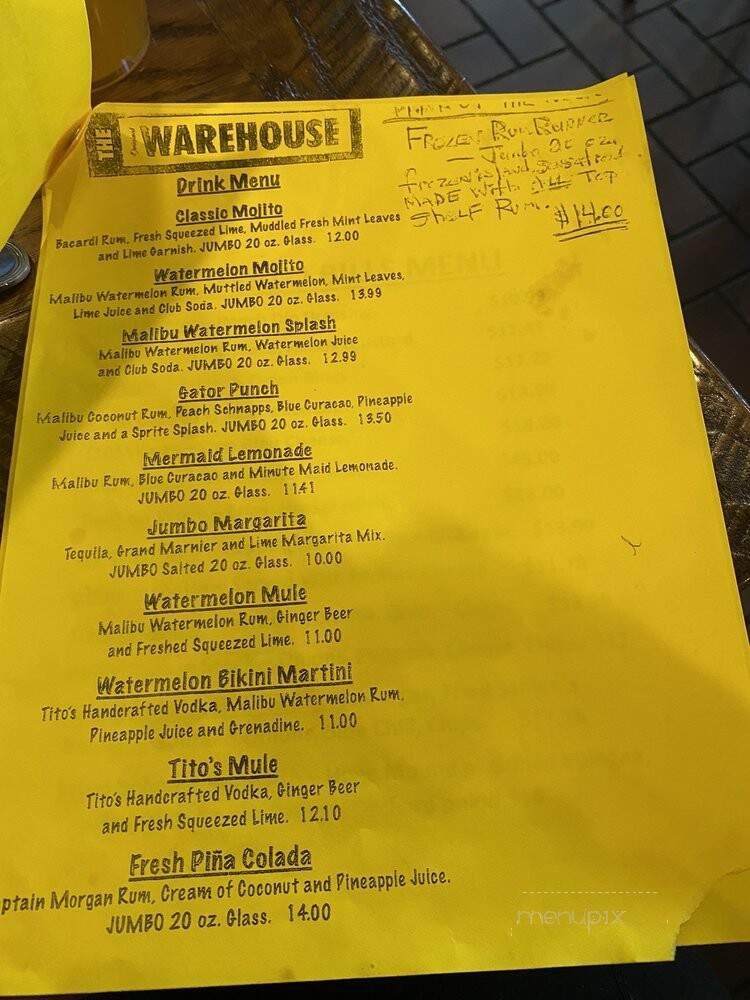 THE Original WAREHOUSE
Drink Menu
Classic Mojito
Bacardi Rum, Fresh Squeezed Lime, Muddled Fresh Mint Leaves
and Lime Garnish. JUMBO 20 oz. Glass. 12.00
Watermelon Mojito
Malibu Watermelon Rum, Muttled Watermelon, Mint Leaves,
Lime Juice and Club Soda. JUMBO 20 oz. Glass. 13.99
Malibu Watermelon Splash
Malibu Watermelon Rum, Watermelon Juice
and Club Soda. JUMBO 20 oz. Glass. 12.99
Gator Punch
Malibu Coconut Rum, Peach Schnapps, Blue Curacao, Pineapple
Juice and a Sprite Splash. JUMBO 20 oz. Glass. 13.50
Mermaid Lemonade
Malibu Rum, Blue Curacao and Minute Maid Lemonade.
JUMBO 20 oz. Glass. 11.41
Jumbo Margarita
Tequila, Grand Marnier and Lime Margarita Mix.
JUMBO Salted 20 oz. Glass. 10.00
Watermelon Mule
Malibu Watermelon Rum, Ginger Beer
and Freshed Squeezed Lime. 11.00
Watermelon Bikini Martini
Tito's Handcrafted Vodka, Malibu Watermelon Rum,
Pineapple Juice and Grenadine. 11.00
Tito's Mule
Tito's Handcrafted Vodka, Ginger Beer
and Fresh Squeezed Lime. 12.10
Fresh Piña Colada
ptain Morgan Rum, Cream of Coconut and Pineapple Juice.
JUMBO 20 oz. Glass. 14.00
FROZEN RUM RUNNER
— Jumbo 20 oz.
frozen
MADE WITH ALL TOP
SHELF RUM. $14.00
MENU
menupix